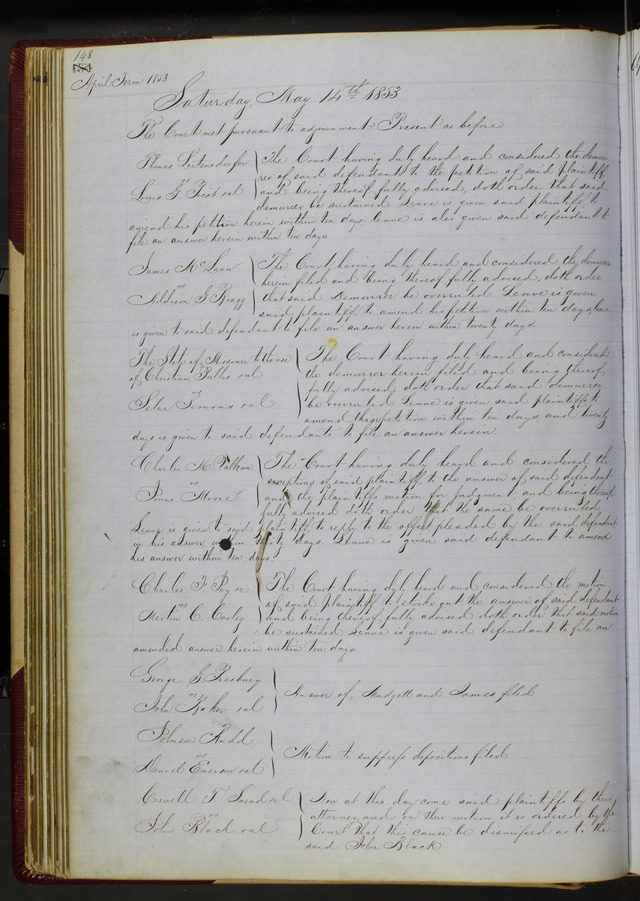 148
April Term 1853
Saturday, May 14th 1853
The Court met pursuant to adjournment Present as before
Thomas
vs
Louis G Picot et al
The Court having duly heard and considered the demur-
rer of said defendants to the petition of said plaintiff
and being thereof fully advised, doth order that said
demurrer be sustained Leave is given said plaintiff to
amend his petition herein within ten days, leave is also given said defendant to
file an answer herein within ten days
James McLean
vs
Addison G Bragg
The Court having duly heard and considered the demurrer
herein filed and being thereof fully advised, doth order
that said Demurrer be overruled Leave is given
said plaintiff to amend his petition within ten days, leave
is given to said defendant to file an answer herein within twenty days.
The State of Missouri to the use
of Christian et al
vs
et al
The Court having duly heard and considered
the demurrer herein filed and being thereof
fully advised, doth order that said demurrer
be overruled Leave is given said plaintiff to
amend this petition within ten days, and twenty
days is given to said defendants to file an answer herein.
Charles M
vs
Jonas Moore
The Court having duly heard and considered the
exceptions of said plaintiff to the answer of said defendant
and the plaintiffs motion for judgment, and being thereof
fully advised doth order that the same be overruled
Leave is given to said plaintiff to reply to the offset pleaded by the said defendant
in his answer within days Leave is given said defendant to amend
his answer within ten days.
Charles F
vs
Martin C
The Court having duly heard and considered the motion
of said plaintiff to strike out the answer of said defendant
and being thereof fully advised doth order that said motion
be sustained Leave is given said defendant to file an
amended answer herein within ten days.
George G Presbury
vs
John Baker et al
Answer of Mudgett and James filed
Johnson
vs
Daniel Emerson et al
Motion to suppress depositions filed
T et al
vs
John Black et al
Now at this day come said plaintiffs by their
attorney, and on their motion it is ordered by the
Court that this cause be dismissed as to the
said John Black